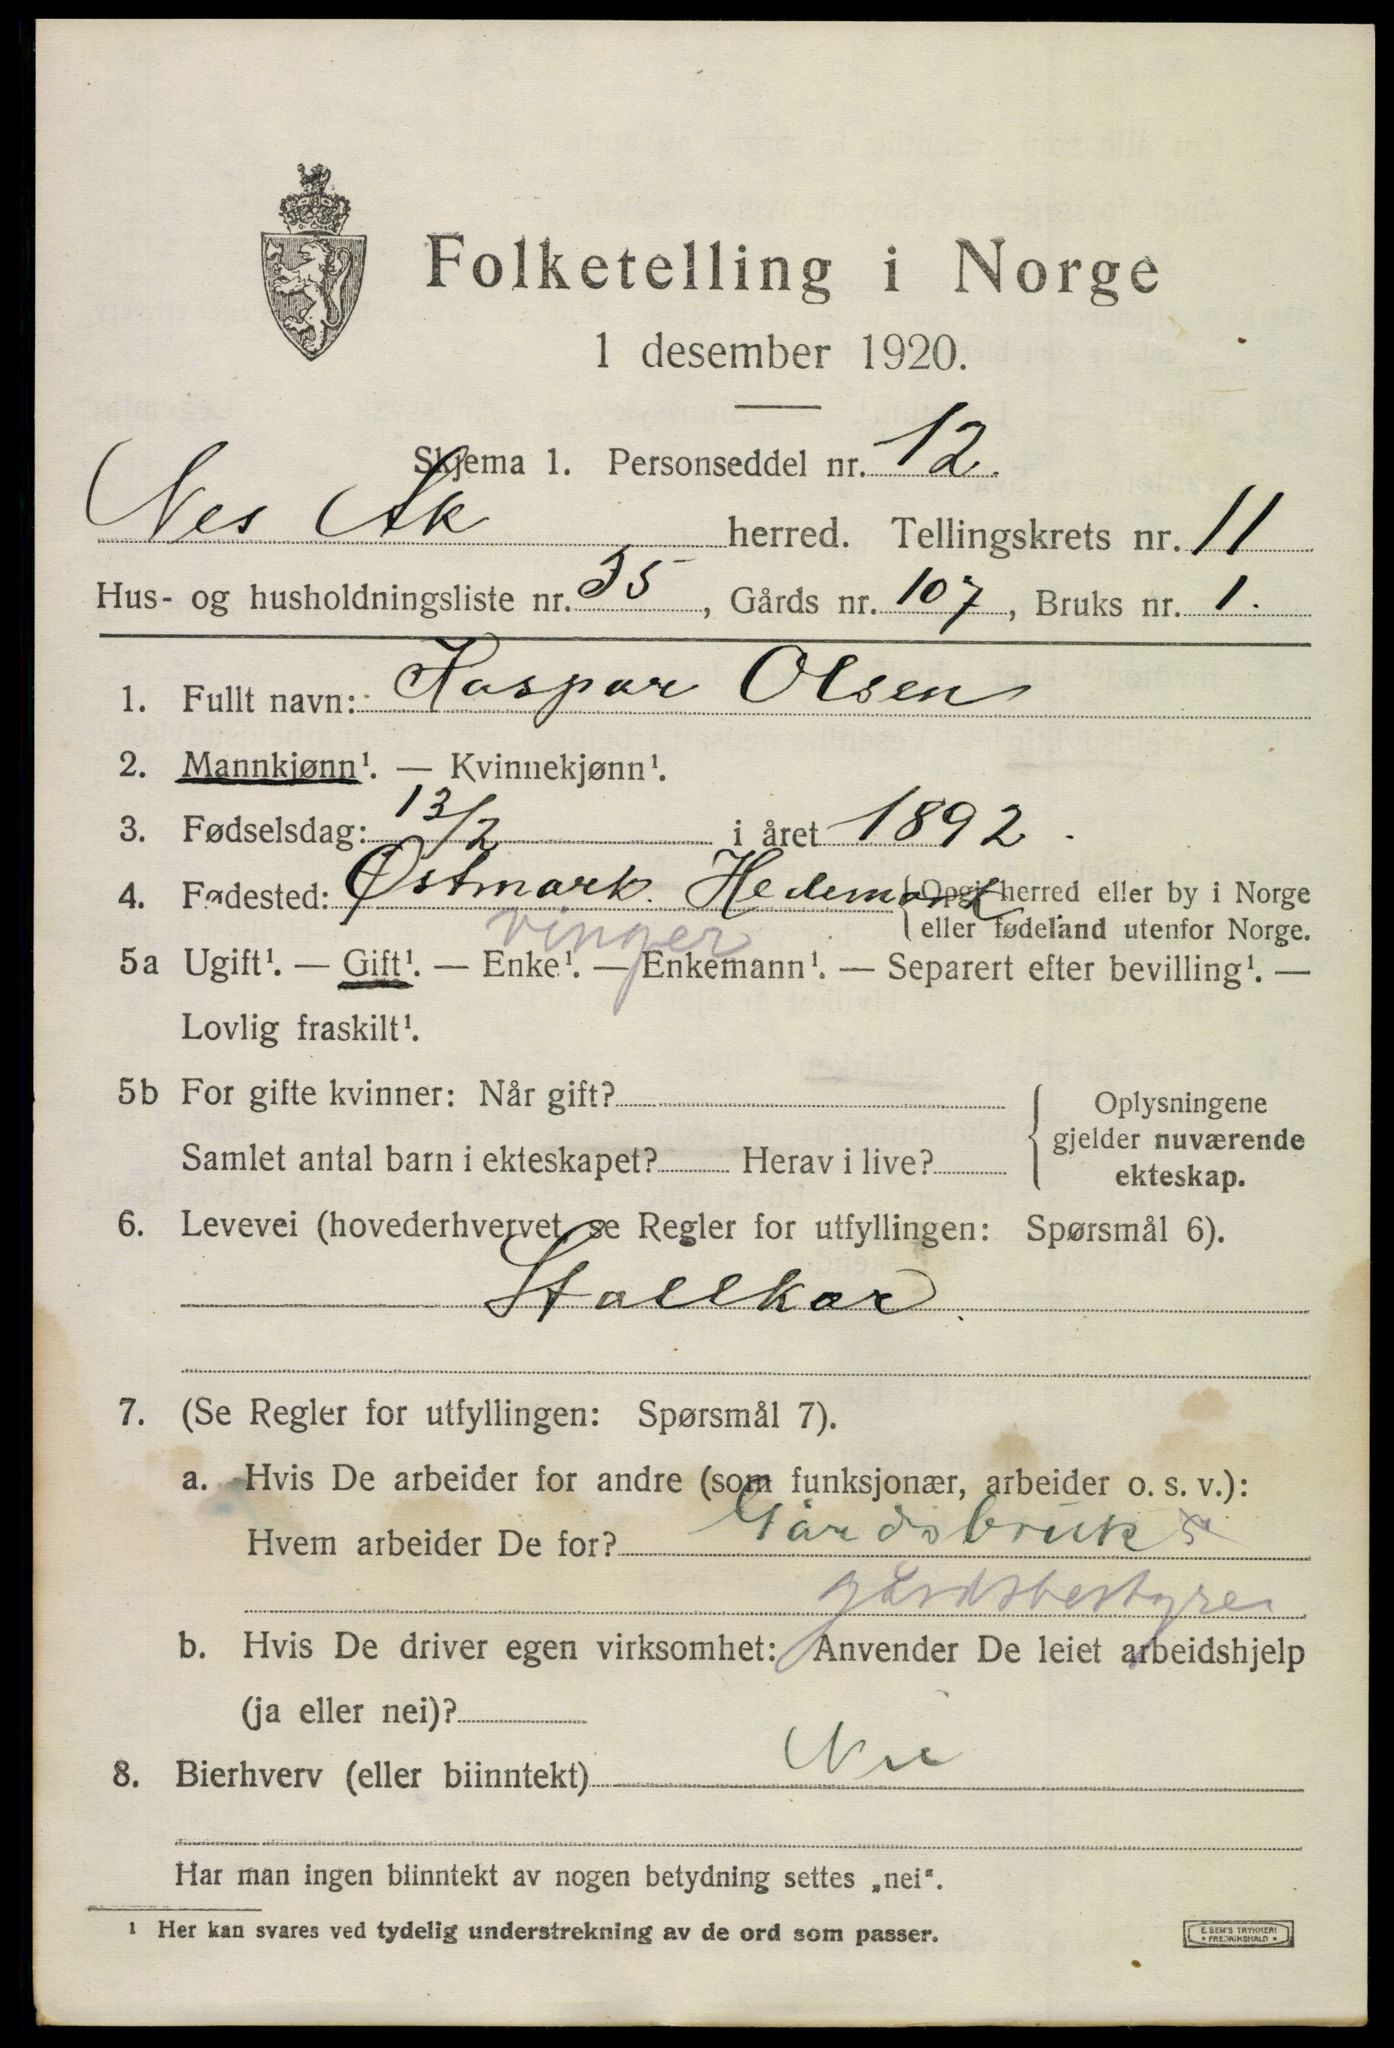 Folketelling i Norge
1 desember 1920.
Skjema 1. Personseddel nr. 12.
Nes Ak herred. Tellingskrets nr. 11
Hus- og husholdningsliste nr. 35, Gårds nr. 107, Bruks nr. 1.
1. Fullt navn: Kaspar Olsen
2. Mannkjønn¹. — Kvinnekjønn¹.
3. Fødselsdag: 13/2 i året 1892.
4. Fødested: Østmark. Hedemark { Opgi herred eller by i Norge
eller fødeland utenfor Norge.
Vinger
5a Ugift¹. — Gift¹. — Enke¹. — Enkemann¹. — Separert efter bevilling¹. —
Lovlig fraskilt¹.
5b For gifte kvinner: Når gift?
Samlet antal barn i ekteskapet? Herav i live?
{ Oplysningene
gjelder nuværende
ekteskap.
6. Levevei (hovederhvervet, se Regler for utfyllingen: Spørsmål 6).
Stallkar.
7. (Se Regler for utfyllingen: Spørsmål 7).
a. Hvis De arbeider for andre (som funksjonær, arbeider o. s. v.):
Hvem arbeider De for? Gårdsbruk
gårdsbestyrer
b. Hvis De driver egen virksomhet: Anvender De leiet arbeidshjelp
(ja eller nei)?
8. Bierhverv (eller biinntekt) Nei
Har man ingen biinntekt av nogen betydning settes „nei“.
¹ Her kan svares ved tydelig understrekning av de ord som passer.
E. SEM'S TRYKKERI
* FREDRIKSHALD *